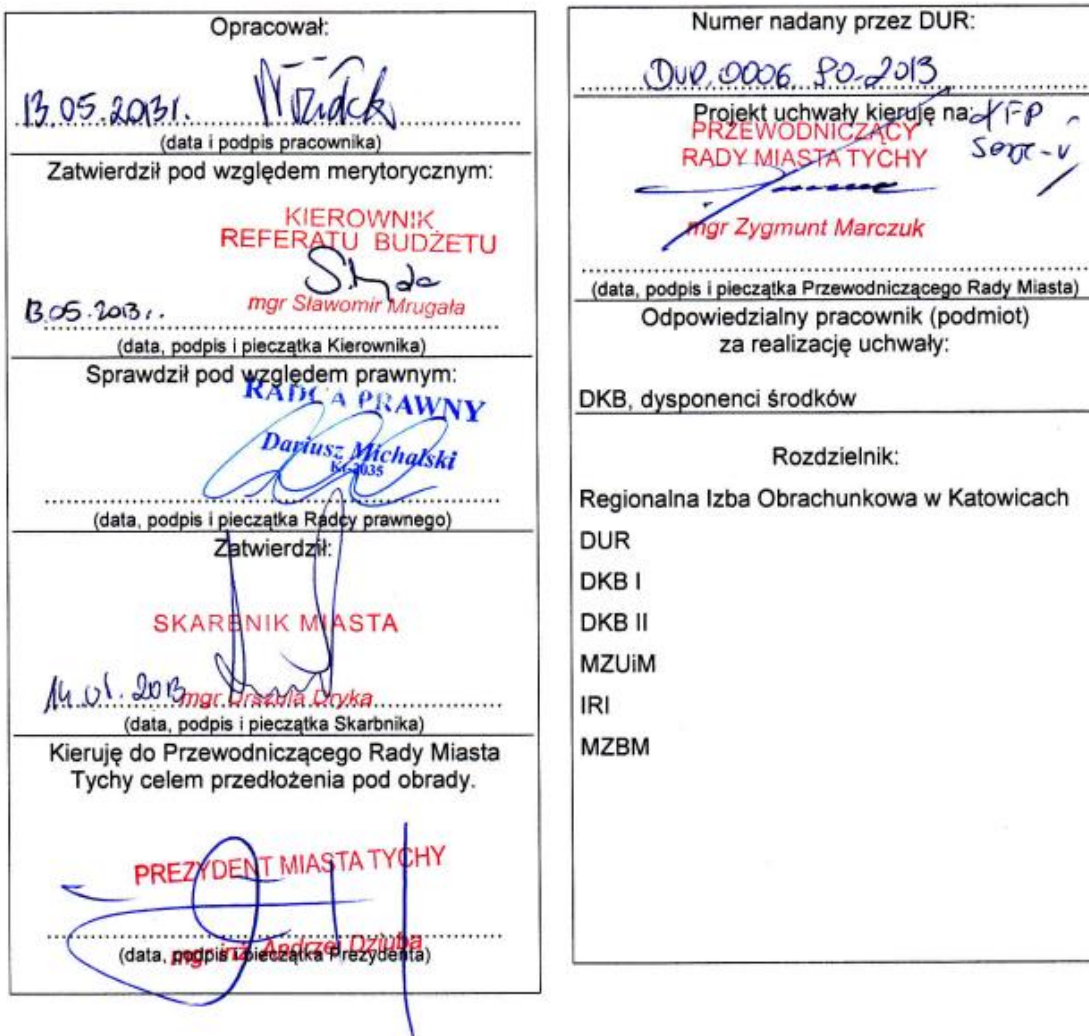 Opracował:
13.05.2013r.
(data i podpis pracownika)
Zatwierdził pod względem merytorycznym:
KIEROWNIK
REFERATU BUDŻETU
mgr Sławomir Mrugała
13.05.2013r.
(data, podpis i pieczątka Kierownika)
Sprawdził pod względem prawnym:
RADCA PRAWNY
Dariusz Michalski
(data, podpis i pieczątka Radcy prawnego)
Zatwierdził:
SKARBNIK MIASTA
mgr Urszula Dryka
(data, podpis i pieczątka Skarbnika)
Kieruję do Przewodniczącego Rady Miasta
Tychy celem przedłożenia pod obrady.
PREZYDENT MIASTA TYCHY
mgr inż. Andrzej Dziuba
(data, podpis i pieczątka Prezydenta)
Numer nadany przez DUR:
0006. 2013
Projekt uchwały kieruję na:
PRZEWODNICZĄCY
RADY MIASTA TYCHY
mgr Zygmunt Marczuk
(data, podpis i pieczątka Przewodniczącego Rady Miasta)
Odpowiedzialny pracownik (podmiot)
za realizację uchwały:
DKB, dysponenci środków
Rozdzielnik:
Regionalna Izba Obrachunkowa w Katowicach
DUR
DKB I
DKB II
MZUiM
IRI
MZBM